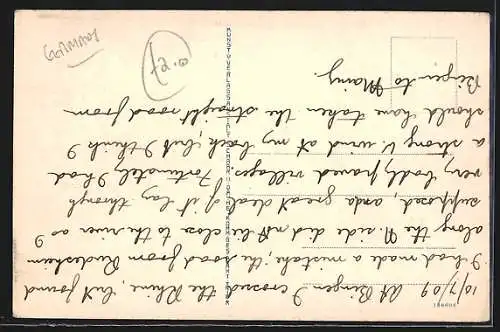 GERMANY
10/7/09 At Bingen I crossed the Rhine, but found
I had made a mistake; the road from Rudesheim
along the N. side did not lie close to the river as I
supposed and a great deal of it lay through
very badly paved villages. Fortunately I had
a strong W wind at my back, but I think I
should have taken the straight road from
Bingen to Mainz.